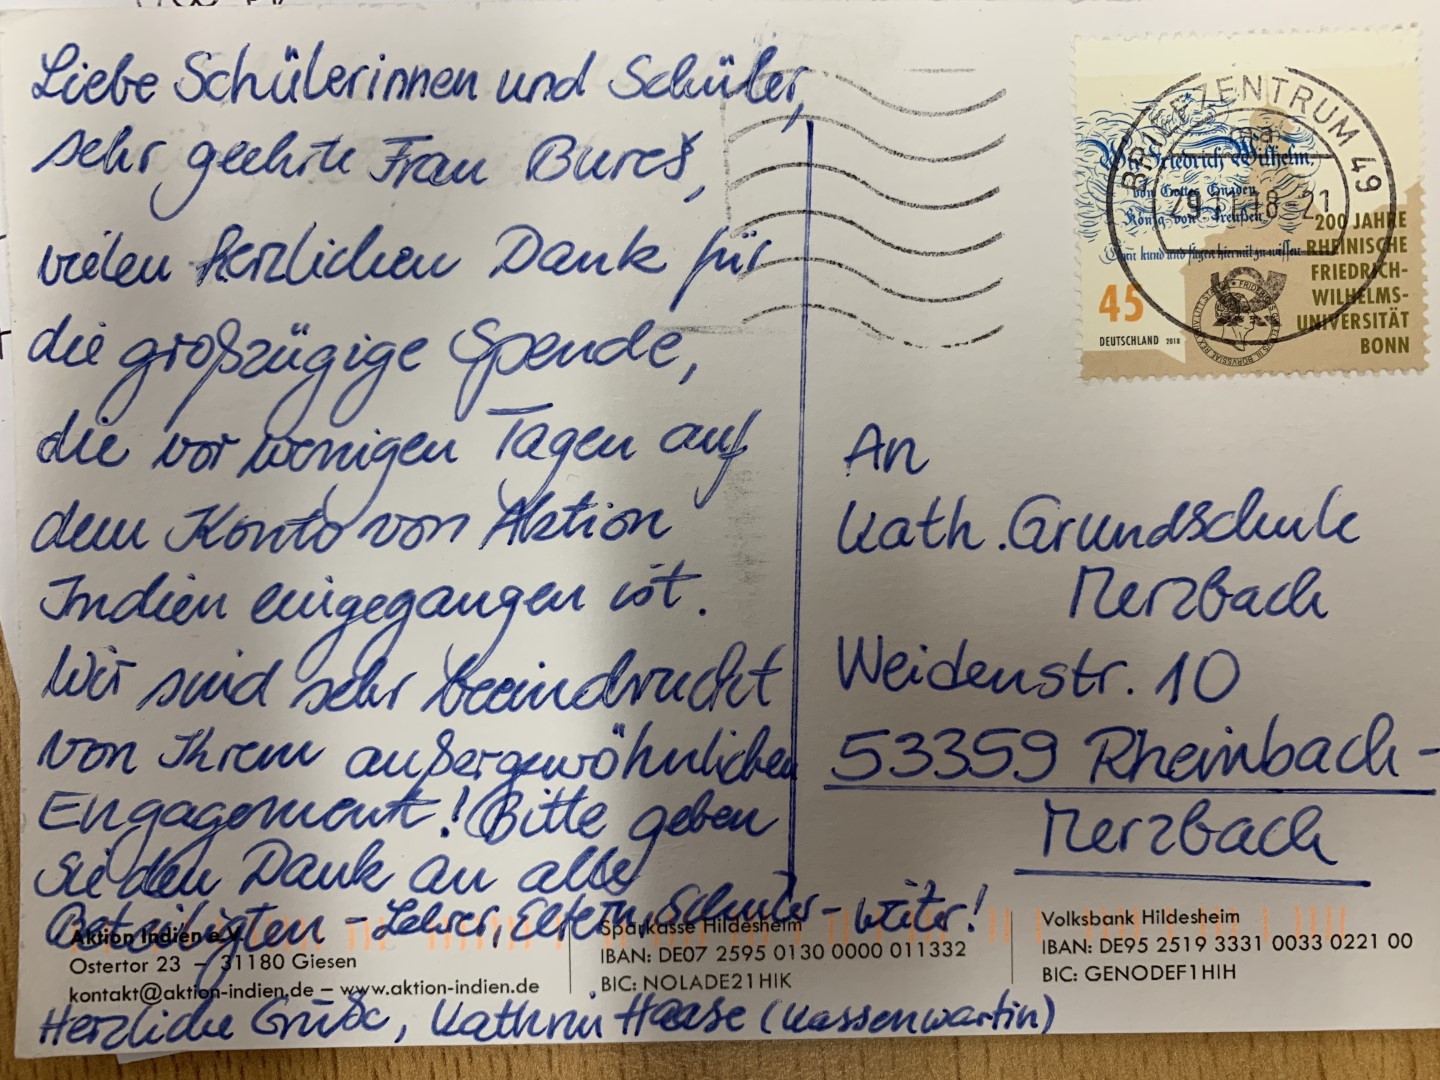 Liebe Schülerinnen und Schüler,
sehr geehrte Frau Bureš,
vielen herzlichen Dank für
die großzügige Spende,
die vor wenigen Tagen auf
dem Konto von Aktion
Indien eingegangen ist.
Wir sind sehr beeindruckt
von Ihrem außergewöhnlichen
Engagement! Bitte geben
Sie den Dank an alle
Beteiligten - Lehrer, Eltern, Schüler - weiter!
Herzliche Grüße, Kathrin Haase (Kassenwartin)
BRIEFZENTRUM 49
29.11.18-21
Friedrich Wilhelm,
von Gottes Gnaden
König von Preußen
thun kund und fügen hiermit zu wissen
200 JAHRE
RHEINISCHE
FRIEDRICH-
WILHELMS-
UNIVERSITÄT
BONN
45
DEUTSCHLAND 2018
An
Kath. Grundschule
Merzbach
Weidenstr. 10
53359 Rheinbach-
Merzbach
Aktion Indien e.V.
Ostertor 23 – 31180 Giesen
kontakt@aktion-indien.de – www.aktion-indien.de
Sparkasse Hildesheim
IBAN: DE07 2595 0130 0000 011332
BIC: NOLADE21HIK
Volksbank Hildesheim
IBAN: DE95 2519 3331 0033 0221 00
BIC: GENODEF1HIH